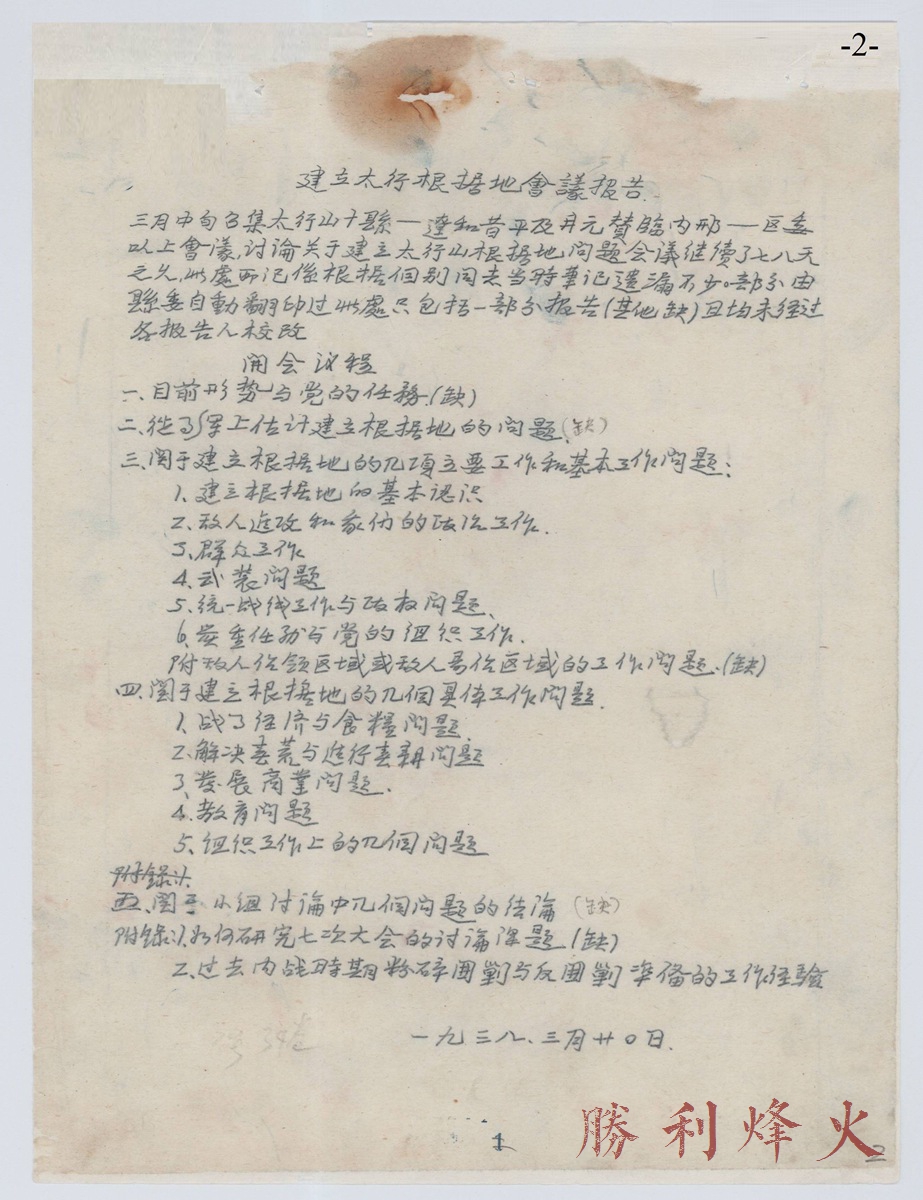 -2-
建立太行根据地會議报告.
三月中旬召集太行山十縣—遼和昔平及井元贊臨内邢—区委
以上會議,讨論关于建立太行山根据地问題会议継续了七八天
之久,此處所记係根据個别同志当時筆记遗漏不少。部分由
縣委自動翻印过此處只包括一部分报告(其他缺)且均未经过
各报告人校改
開会议程
一、目前形势与党的任務(缺)
二、從军上估计建立根据地的问題(缺)
三、関于建立根据地的几項主要工作和基本工作问題:
1、建立根据地的基本認识
2、敌人进攻和我们的政治工作.
3、群众工作
4、武装问題
5、统一战线工作与政权问題、
6、严重任務与党的组织工作.
附敌人佔領区域或敌人易佔区域的工作问題、(缺)
四、関于建立根据地的几個具体工作问題.
1、战了经济与食糧问題.
2、解决春荒与進行春耕问題
3、发展商業问題.
4、教育问題
5、组织工作上的几個问題
附錄1、
五、関于小组讨論中几個问題的结論(缺)
附錄1、如何研究七次大会的讨論课題(缺)
2、过去内战時期粉碎圍剿与反圍剿準備的工作经驗
34卷
一九三八、三月廿0日.
1
2
勝利烽火